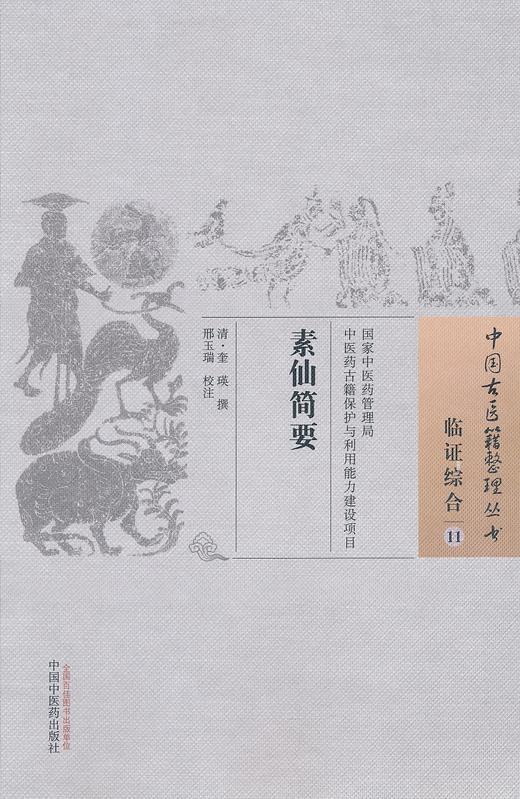 中国古医籍整理丛书
临证综合
11
国家中医药管理局
中医药古籍保护与利用能力建设项目
素仙简要
清·奎 瑛 撰
邢玉瑞 校注
全国百佳图书出版单位
中国中医药出版社